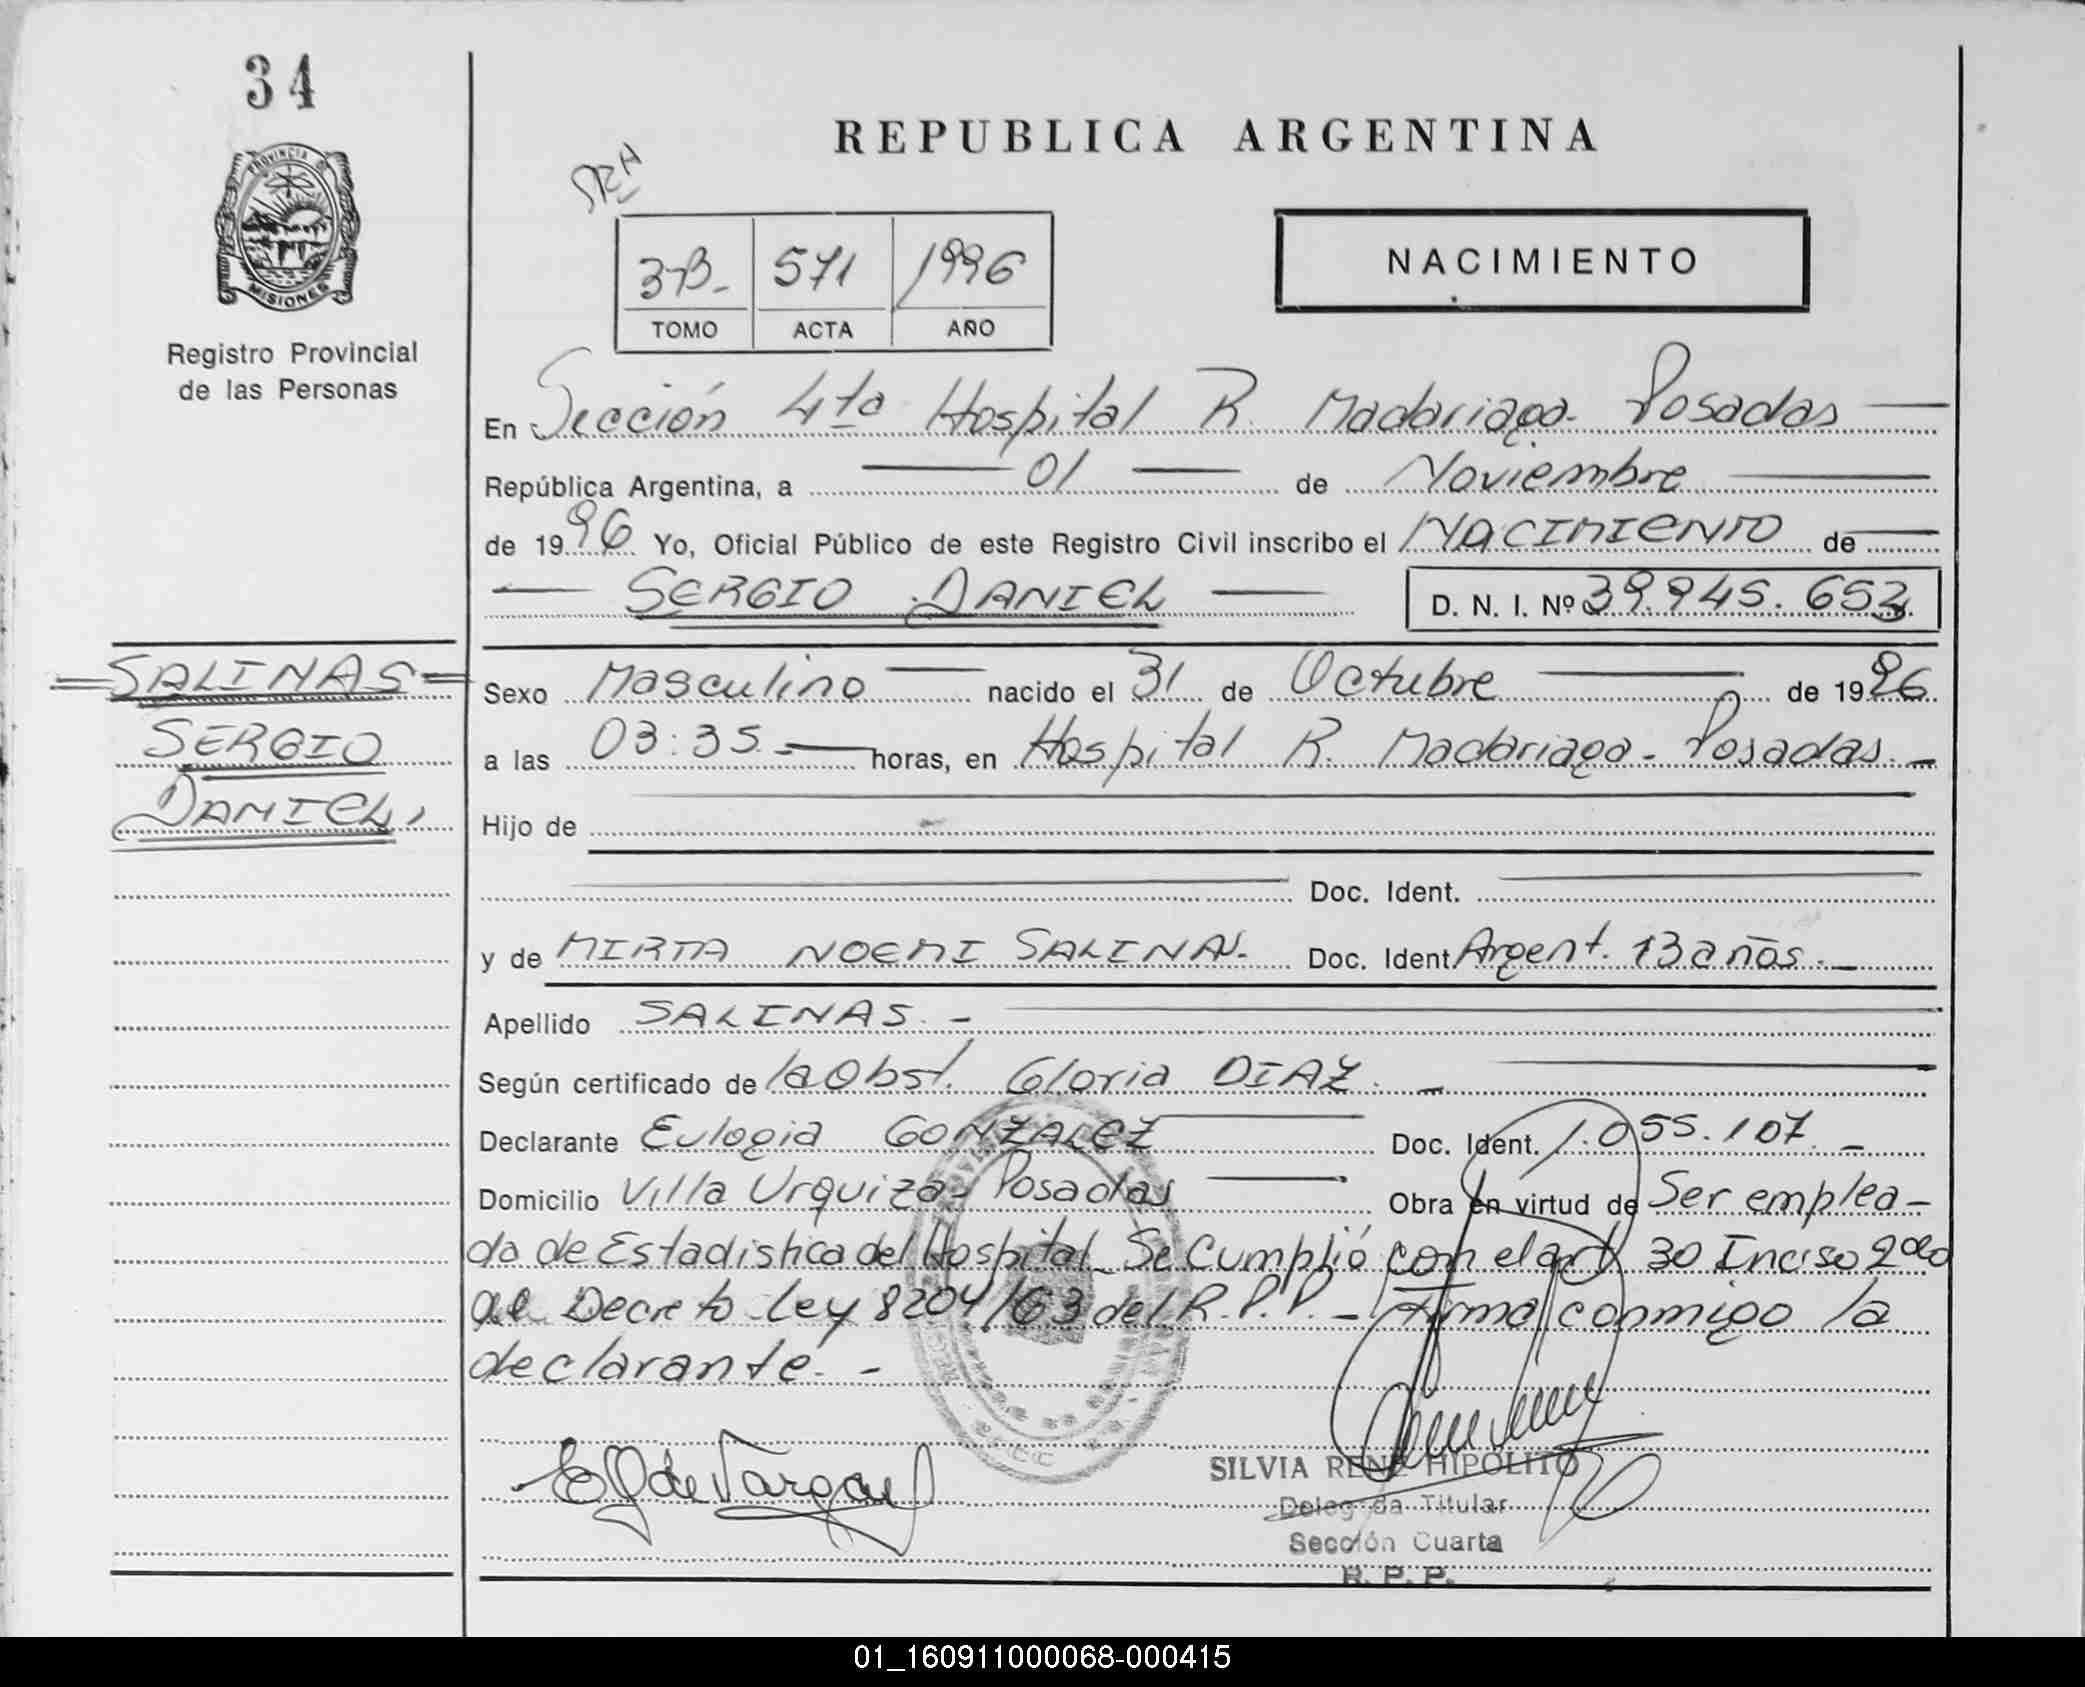 34
PROVINCIA DE
MISIONES
Registro Provincial
de las Personas
REPUBLICA ARGENTINA
3-B- 571 1996
TOMO ACTA AÑO
NACIMIENTO
En Sección 4ta Hospital R. Madariaga - Posadas
República Argentina, a 01 de Noviembre
de 1996 Yo, Oficial Público de este Registro Civil inscribo el NACIMIENTO de
SERGIO DANIEL D. N. I. Nº 39.945.653
SALINAS
SERGIO
DANIEL
Sexo Masculino nacido el 31 de Octubre de 1996
a las 03:35.- horas, en Hospital R. Madariaga - Posadas.-
Hijo de
Doc. Ident.
y de MIRTA NOEMI SALINAS.- Doc. Ident Argent. 13 años.-
Apellido SALINAS.-
Según certificado de la Obst. Gloria DIAZ.-
Declarante Eulogia GONZALEZ Doc. Ident. 1.055.107.-
Domicilio Villa Urquiza - Posadas Obra en virtud de Ser emplea-
da de Estadistica del Hospital - Se Cumplió con el art 30 Inciso 2do
del Decreto Ley 8204/63 del R.P.P. - Firma conmigo la
declarante.-
E G de Vargas
SILVIA RENE HIPOLITO
Delegada Titular
Sección Cuarta
R. P. P.
01_160911000068-000415